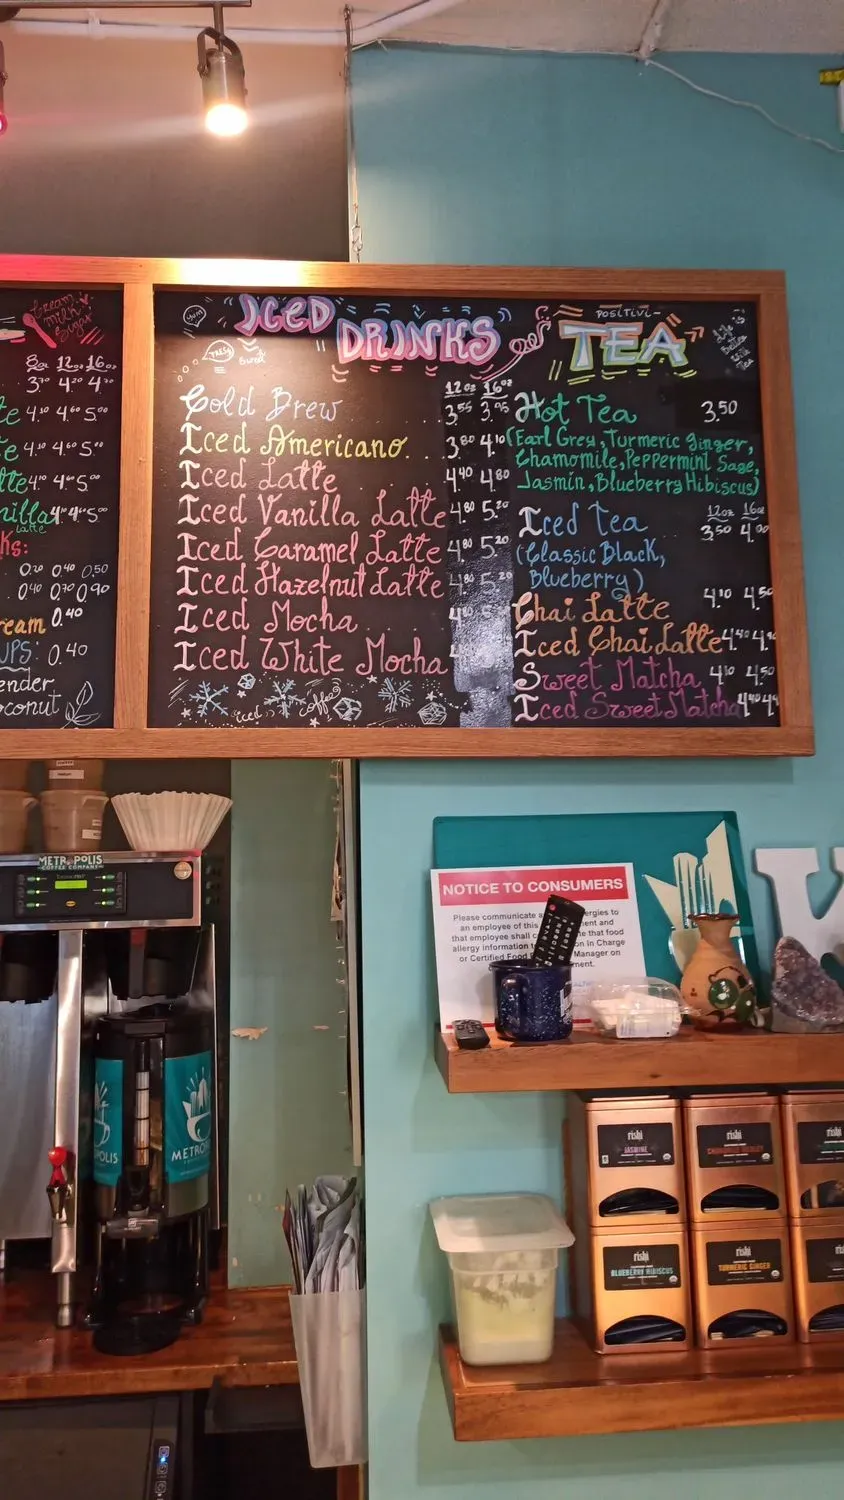 Cream
Milk &
Sugar
8oz 12oz 16oz
3.70 4.20 4.70
4.10 4.60 5.00
4.10 4.60 5.00
4.10 4.60 5.00
4.10 4.60 5.00
latte
ks:
0.20 0.40 0.50
0.40 0.70 0.90
ream 0.40
UPS: 0.40
ender
oconut
yum
ICED
DRINKS
FRESH
Sweet
12oz 16oz
Cold Brew 3.55 3.95
Iced Americano 3.80 4.10
Iced Latte 4.40 4.80
Iced Vanilla Latte 4.80 5.20
Iced Caramel Latte 4.80 5.20
Iced Hazelnut Latte 4.80 5.20
Iced Mocha
Iced White Mocha
iced coffee
POSITIVI-
TEA
Life is
Better
with
Tea
Hot Tea 3.50
(Earl Grey, Turmeric Ginger,
Chamomile, Peppermint Sage,
Jasmin, Blueberry Hibiscus)
12oz 16oz
Iced Tea 3.50 4.00
(Classic Black,
Blueberry)
Chai Latte 4.10 4.50
Iced Chai Latte 4.40
Sweet Matcha 4.10 4.50
Iced Sweet Matcha 4.40
METROPOLIS
COFFEE COMPANY
POLIS
METROP
NOTICE TO CONSUMERS
Please communicate a ergies to
an employee of this ment and
that employee shall c te that food
allergy information t on in Charge
or Certified Food Manager on
ment.
rishi
JASMINE
rishi
rishi
BLUEBERRY HIBISCUS
rishi
TURMERIC GINGER